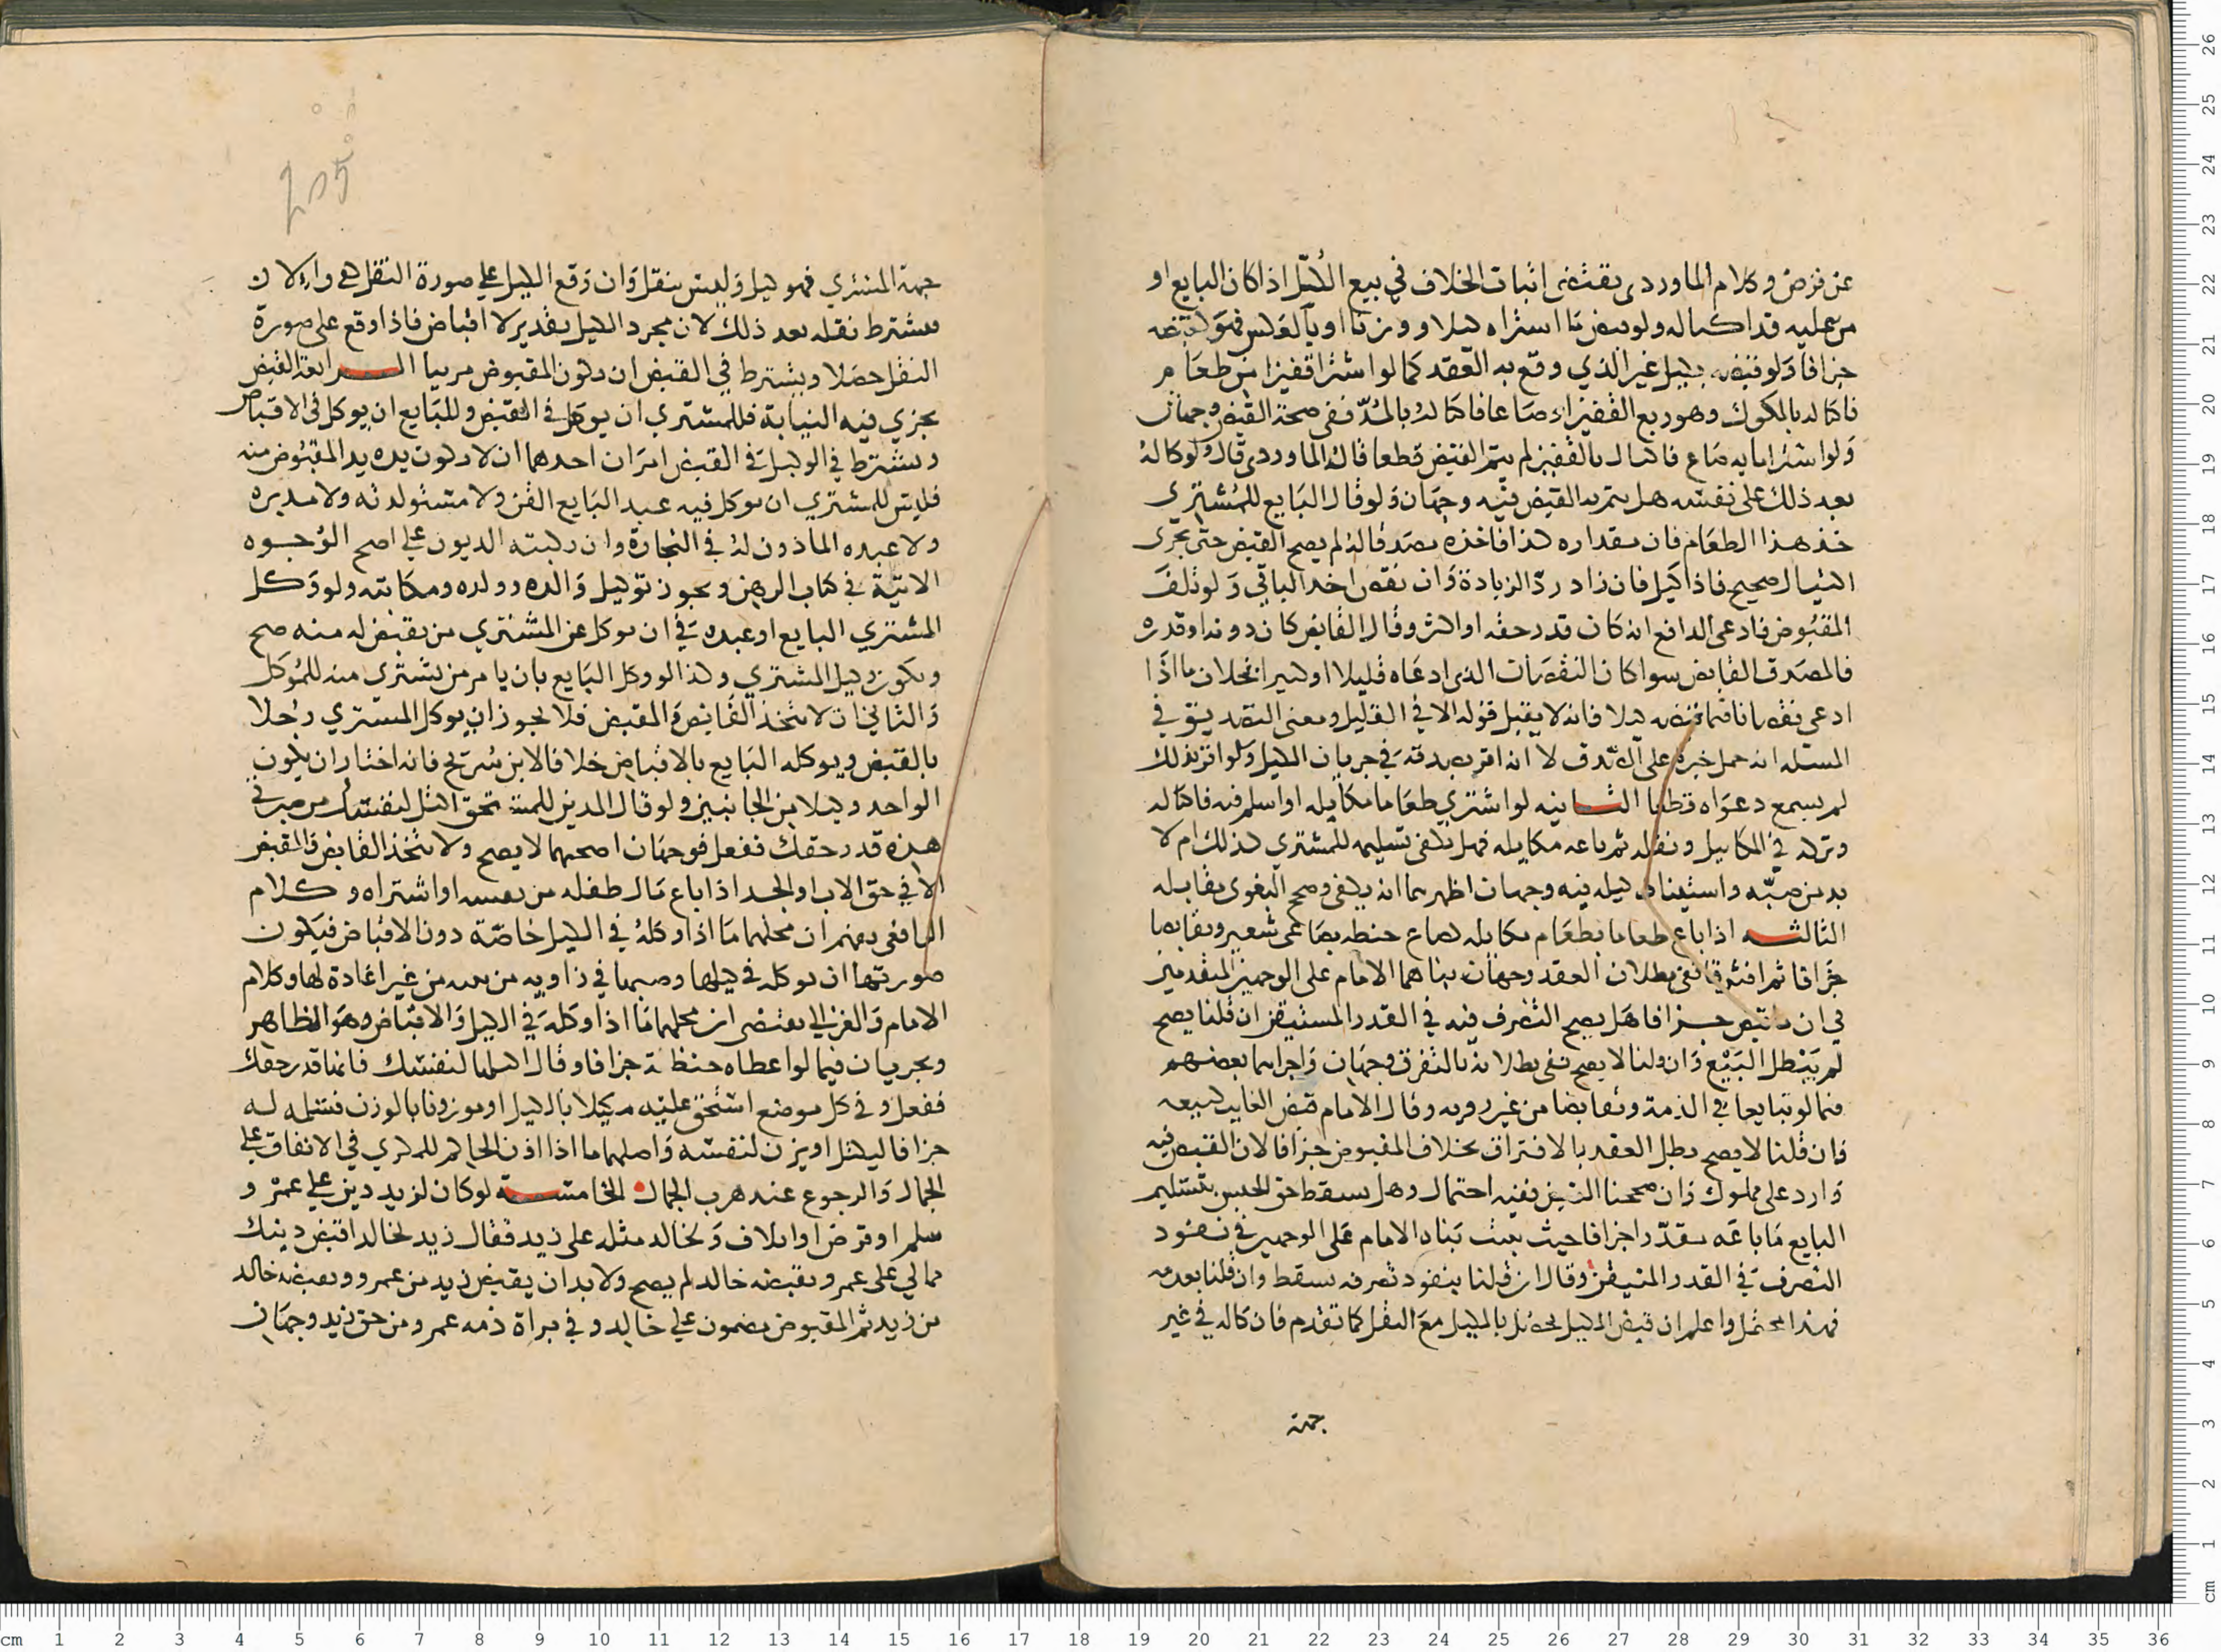 عن فرض وكلام الماوردى يقتضى اثبات الخلاف في بيع الكيل اذا كان البايع او
من عليه قد اكتاله ولو قبض ما اشتراه كيلا ووزنا او بالعكس فهو كقبضه
جزافا ولو قبضه بكيل غير الذي وقع به العقد كما لو اشترا قفيزا من طعام
فاكتاله بالمكوك وهو ربع القفيز او صاعا فاكتاله بالمدّ ففى صحة القبض وجهان
ولو اشترا مايه صاع فاكتال بالقفيز لم يتم القبض قطعا قاله الماوردى قال ولو كاله
بعد ذلك على نفسه هل يتم به القبض فيه وجهان ولو قال البايع للمشترى
خذ هذا الطعام فان مقداره كذا فاخذه مصدقا له لم يصح القبض حتى يجرى
اكتيال صحيح فاذا كيل فان زاد ردّ الزيادة وان نقص اخذ الباقي ولو تلف
المقبوض فادعى الدافع انه كان قدر حقه او اكثر وقال القابض كان دونه او قدره
فالمصدق القابض سوا كان النقصان الذى ادعاه قليلا او كثيرا بخلاف ما اذا
ادعى نقصانا فيما قبضه كيلا فانه لا يقبل قوله الا في القليل ومعنى التصديق في
المسئله انه حمل خبره على الصدق لا انه اقر بصدقه في جريان الكيل ولو اقر بذلك
لم يسمع دعواه قطعا الثانيه لو اشترى طعاما مكايله او اسلم فيه فاكتاله
وتركه في المكاييل ونقله ثم باعه مكايله فهل يكفى تسليمه للمشترى كذلك ام لا
بد من صبّه واستيناف كيله فيه وجهان اظهرهما انه يكفى وصحح البغوى مقابله
الثالثه اذا باع طعاما بطعام مكايله كصاع حنطه بصاعى شعير وتقابضا
جزافا ثم افترقا ففى بطلان العقد وجهان بناهما الامام على الوجهين المتقدمين
في ان ما قبض جزافا هل يصح التصرف فيه في القدر المستيقن ان قلنا يصح
لم يبطل البيع وان قلنا لا يصح ففى بطلانه بالتفرق وجهان واجراهما بعضهم
فيما لو تبايعا في الذمة وتقابضا من غير رويه وقال الامام قبض الغايب كبيعه
فان قلنا لا يصح بطل العقد بالافتراق بخلاف المقبوض جزافا لان القبض فيه
وارد على مملوك وان صححنا القبض ففيه احتمال وهل يسقط حق الحبس بتسليم
البايع ما باعه مقدّرا جزافا حيث يثبت بناه الامام على الوجهين في نفود
التصرف في القدر المتيقن وقال ان قلنا بنفود تصرفه سقط وان قلنا بعدمه
فهذا محتمل واعلم ان قبض المكيل يحصل بالكيل مع النقل كما تقدم فان كاله في غير
جهة
جهة المشتري فهو كيل وليس بنقل وان وقع الكيل على صورة النقل
يشترط نقله بعد ذلك لان مجرد الكيل تقدير لا اقباض فاذا وقع على صورة
النقل حصلا ويشترط في القبض ان يكون المقبوض مرييا الرابعة القبض
يجزي فيه النيابة فللمشترى ان يوكل في القبض وللبايع ان يوكل في الاقباض
ويشترط في الوكيل في القبض امران احدهما ان لا يكون يده يد المقبوض منه
فليس للمشترى ان يوكل فيه عبد البايع القن ولا مستولدته ولا مدبره
ولا عبده الماذون له في التجارة وان ركبته الديون على اصح الوجوه
الاتية في كتاب الرهن ويجوز توكيل والده وولده ومكاتبه ولو وكل
المشتري البايع او عبده في ان يوكل عن المشتري من يقبض له منه صح
ويكون وكيل المشتري وكذا لو وكل البايع بان يامر من يشترى منه للموكل
والثاني ان لا يتخذ القابض والمقبض فلا يجوز ان يوكل المشتري رجلا
بالقبض ويوكله البايع بالاقباض خلافا لابن سُرَيج فانه اختار ان يكون
الواحد وكيلا من الجانبين ولو قال المدين للمستحق اكتل لنفسك من صبرتي
هذه قدر حقك ففعل فوجهان اصحهما لا يصح ولا يتخذ القابض والمقبض
الا في حق الاب والجد اذا باع مال طفله من نفسه او اشتراه وكلام
الرافعى يفهم ان محلهما ما اذا وكله في الكيل خاصّة دون الاقباض فيكون
صورتها ان يوكله في كيلها وصبها في زاويه من بيته من غير اعادة لها وكلام
الامام والغزالي يقتضى ان محلهما ما اذا وكله في الكيل والاقباض وهو الظاهر
ويجريان فيما لو اعطاه حنطة جزافا وقال اكتلها لنفسك فانها قدر حقك
ففعل وفي كل موضع استحق عليه مكيلا بالكيل او موزونا بالوزن فسلمه له
جزافا ليكتل او يزن لنفسه واصلهما ما اذا اذن الحاكم للمكري في الانفاق على
الجمال والرجوع عند هرب الجمال الخامسة لو كان لزيد دين على عمرو
سلم او قرض او اتلاف ولخالد مثله على زيد فقال زيد لخالد اقبض دينك
مما لي على عمرو فقبضه خالد لم يصح ولا بد ان يقبض زيد من عمرو ويقبضه خالد
من زيد ثم المقبوض مضمون على خالد وفي براة ذمه عمرو من حق زيد وجهان